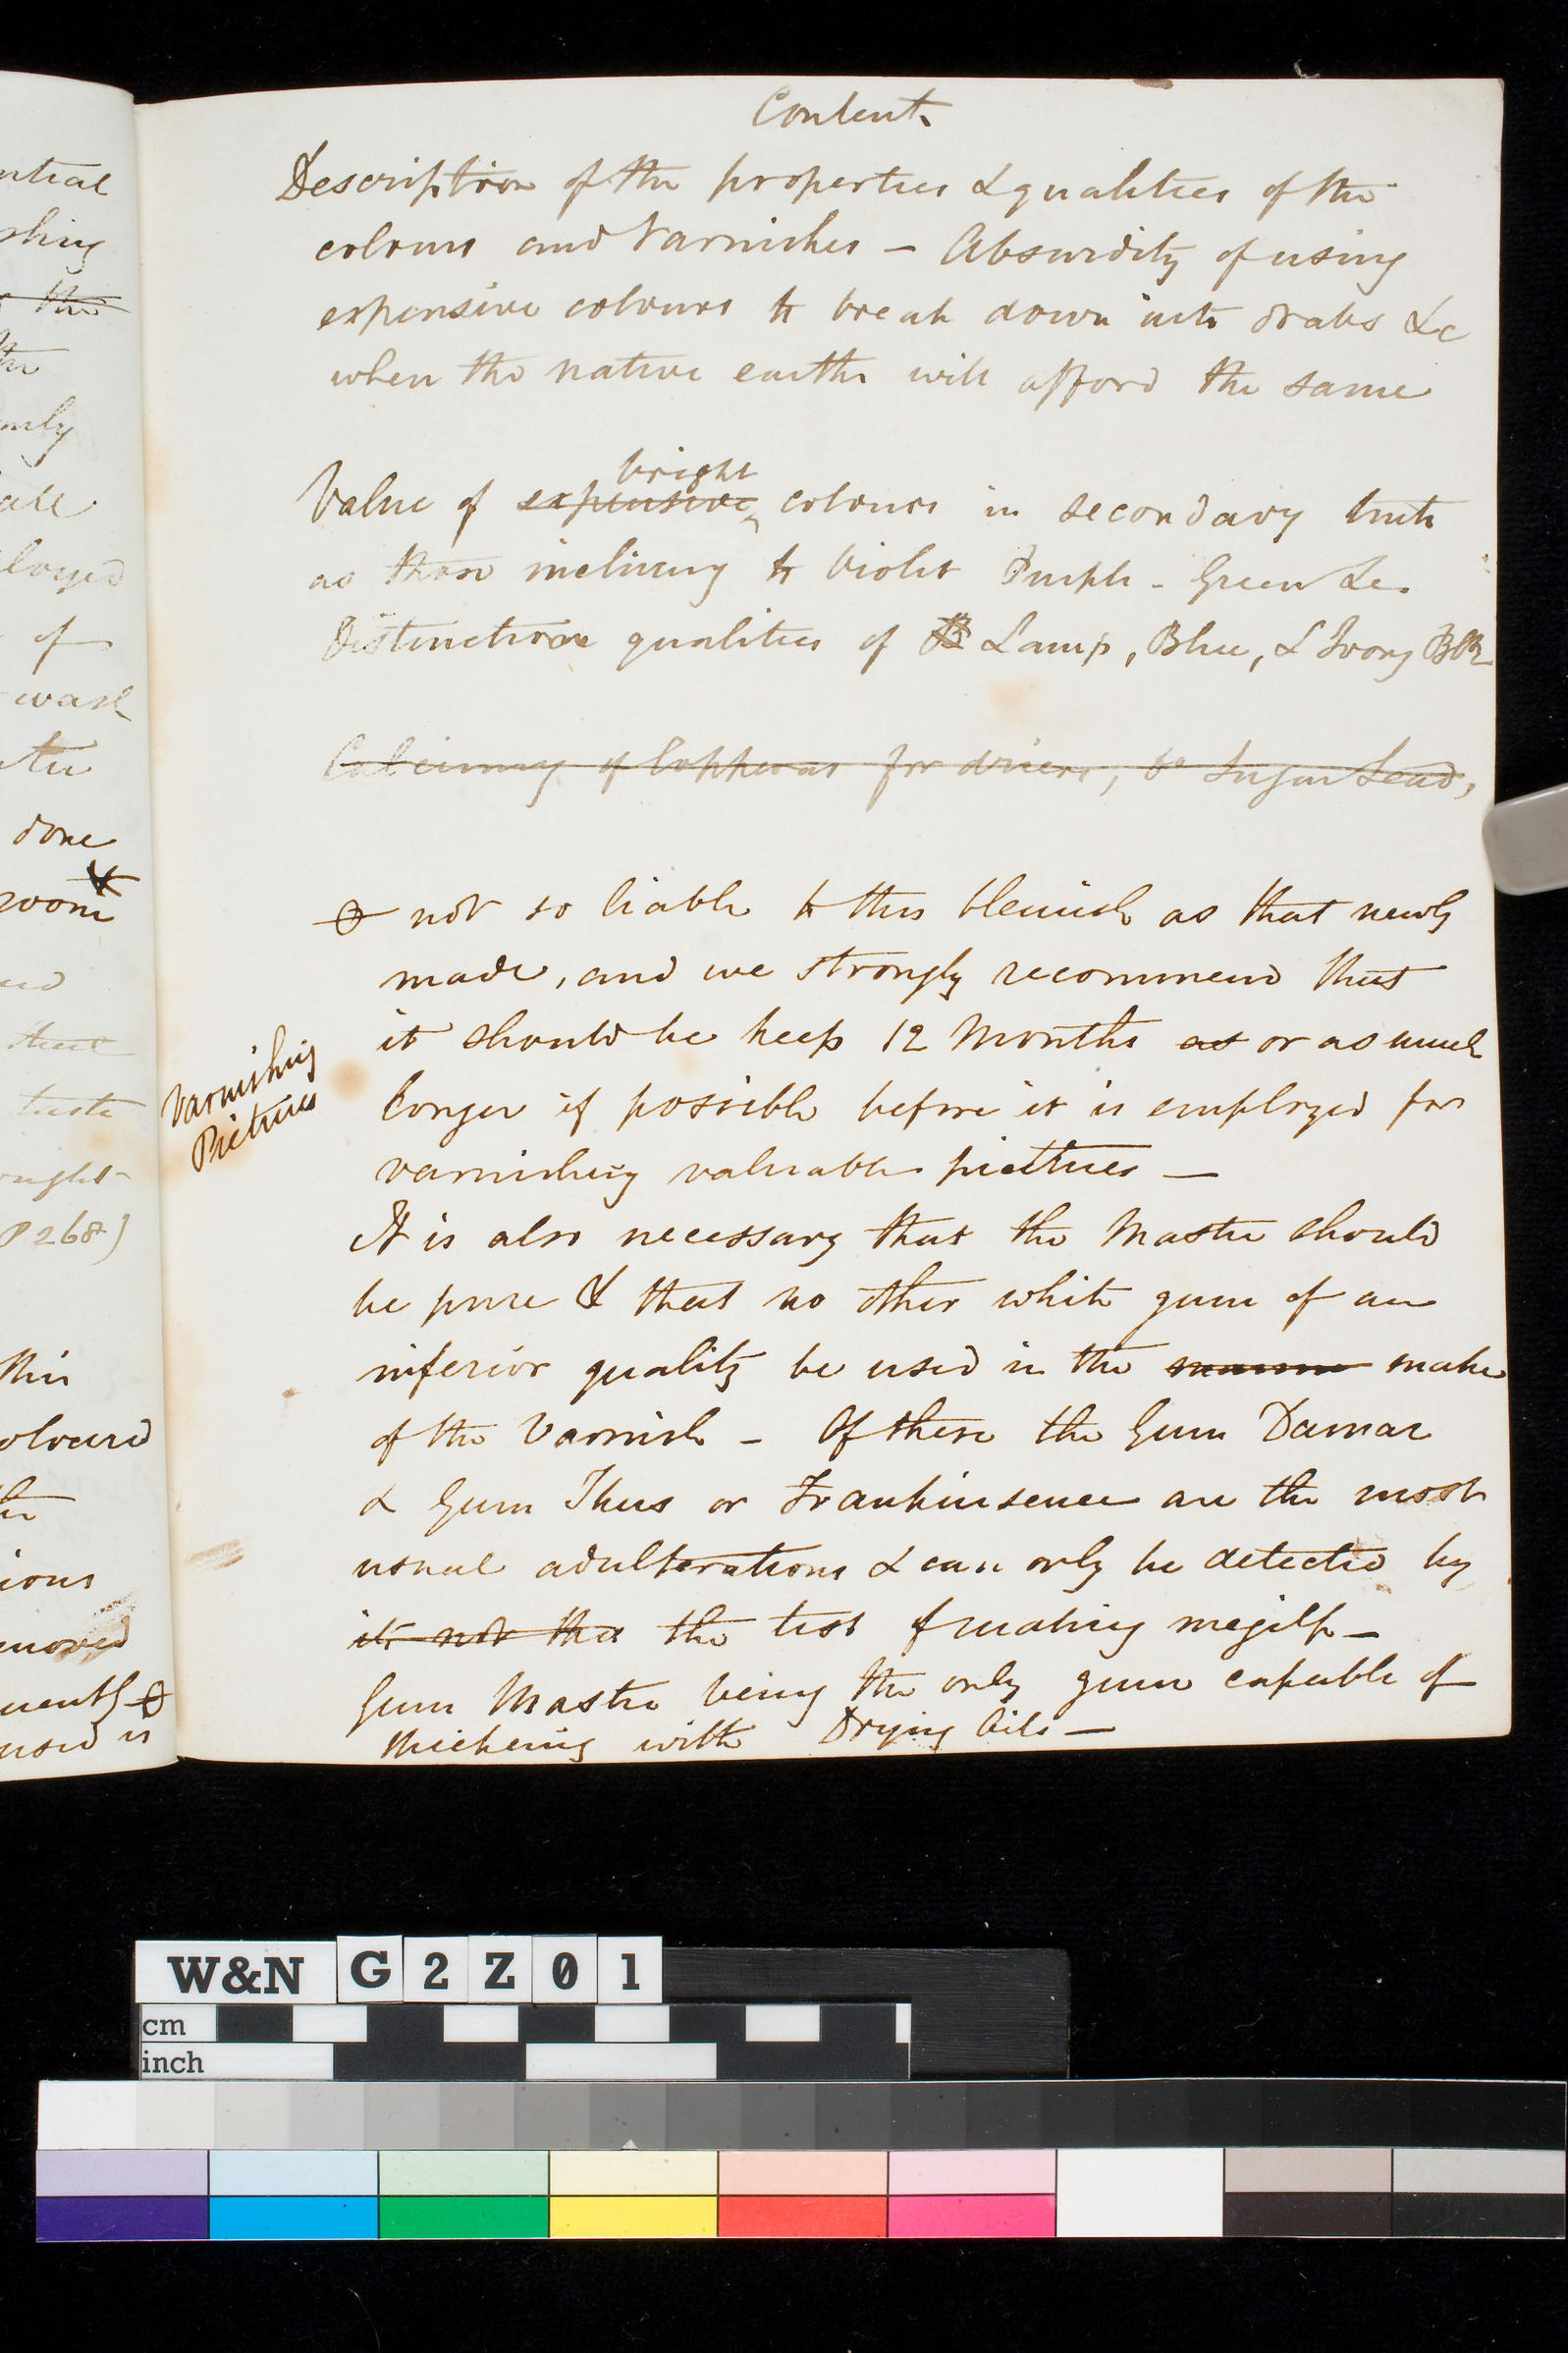 ntial
shing
the
the
only
all
loyed
of
wash
done
room
that
ought
P 268)
this
oloured
ions
moved
used is
Contents
Description of the properties & qualities of the
colours and Varnishes – Absurdity of using
expensive colours to break down into drabs &c
when the native earths will afford the same
bright
Value of expensive colours in secondary tints
as those inclining to Violet Purple – Green &c.
Distinctive qualities of B Lamp, Blue, & Ivory Blk
Calcining of Copperas for driers, Do Sugar Lead,
not so liable to this blemish as that newly
made, and we strongly recommend that
it should be keep 12 Months as or as much
longer if possible before it is employed for
varnishing valuable pictures –
Varnishing
Pictures
It is also necessary that the Mastic should
be pure & that no other white gum of an
inferior quality be used in the make
of the Varnish – Of these the Gum Damar
& Gum Thus or Frankinsence are the most
usual adulterations & can only be detected by
its not the the test of making megilp –
Gum Mastic being the only gum capable of
thickening with Drying Oils –
W&N G2Z01
cm
inch